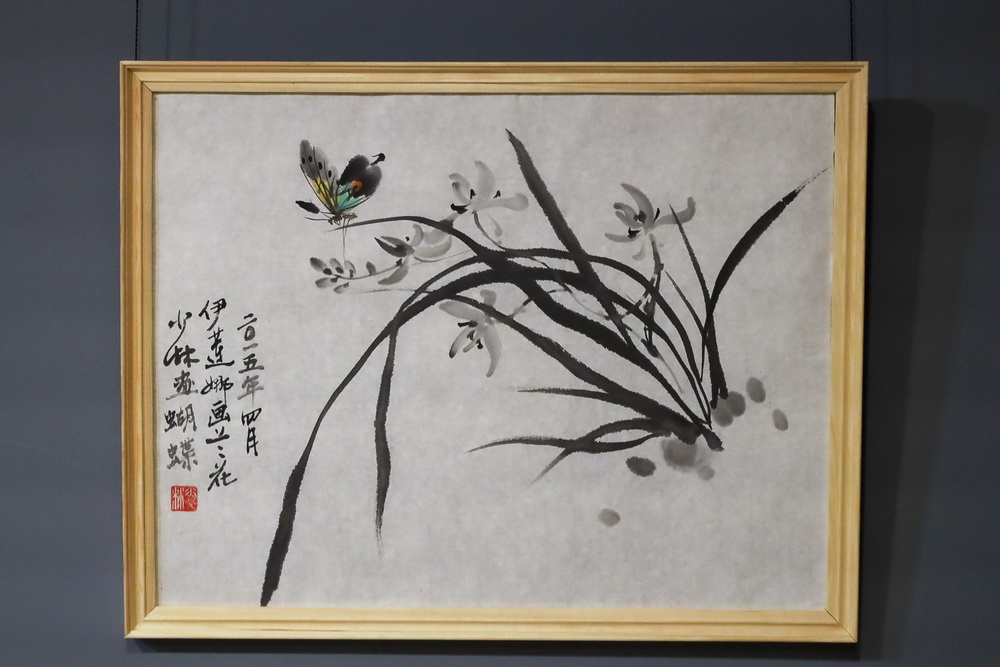 二〇一五年四月
伊莲娜画兰花
少林画蝴蝶
少林